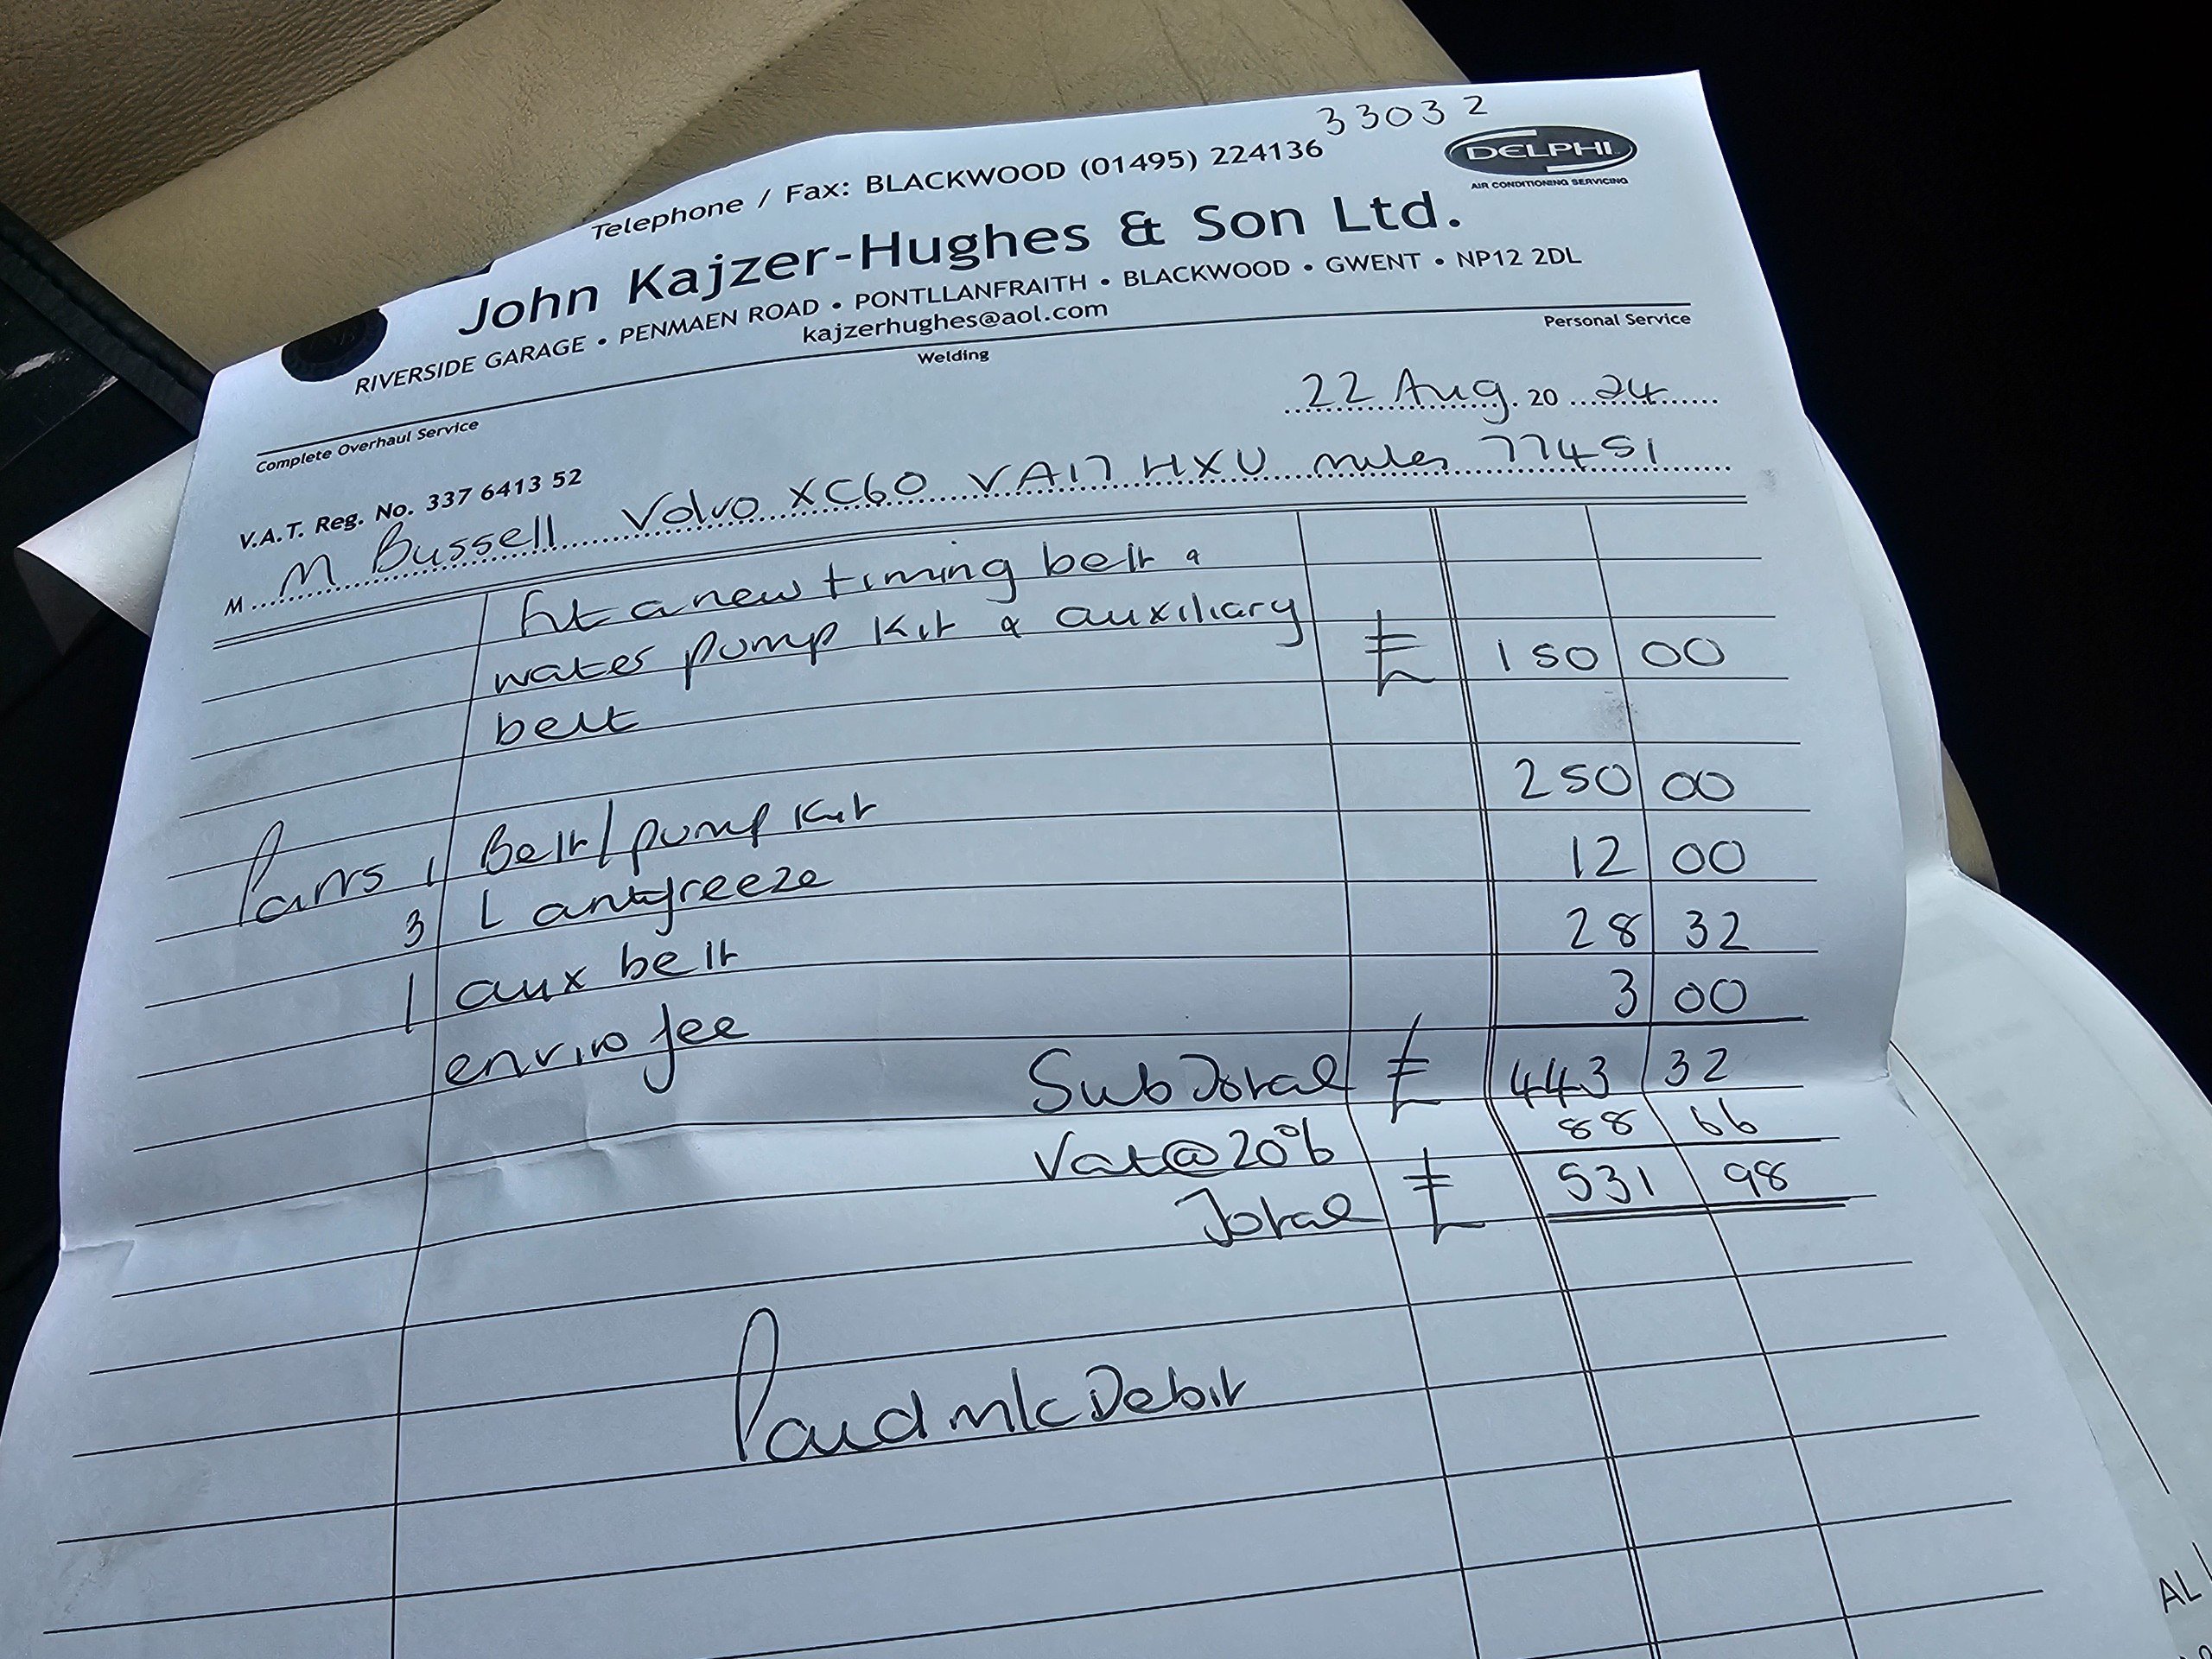 33032
Telephone / Fax: BLACKWOOD (01495) 224136
DELPHI
AIR CONDITIONING SERVICING
John Kajzer-Hughes & Son Ltd.
RIVERSIDE GARAGE • PENMAEN ROAD • PONTLLANFRAITH • BLACKWOOD • GWENT • NP12 2DL
kajzerhughes@aol.com
Complete Overhaul Service Welding Personal Service
22 Aug. 20 24
V.A.T. Reg. No. 337 6413 52
M M Bussell Volvo XC60 VA17 HXU miles 77451
fit a new timing belt &
water pump kit & auxiliary £ 150 00
belt
Parts 1 Belt/pump kit 250 00
3 L antifreeze 12 00
1 aux belt 28 32
enviro fee 3 00
Sub Total £ 443 32
Vat@20% 88 66
Total £ 531 98
Paid m/c Debit
AL